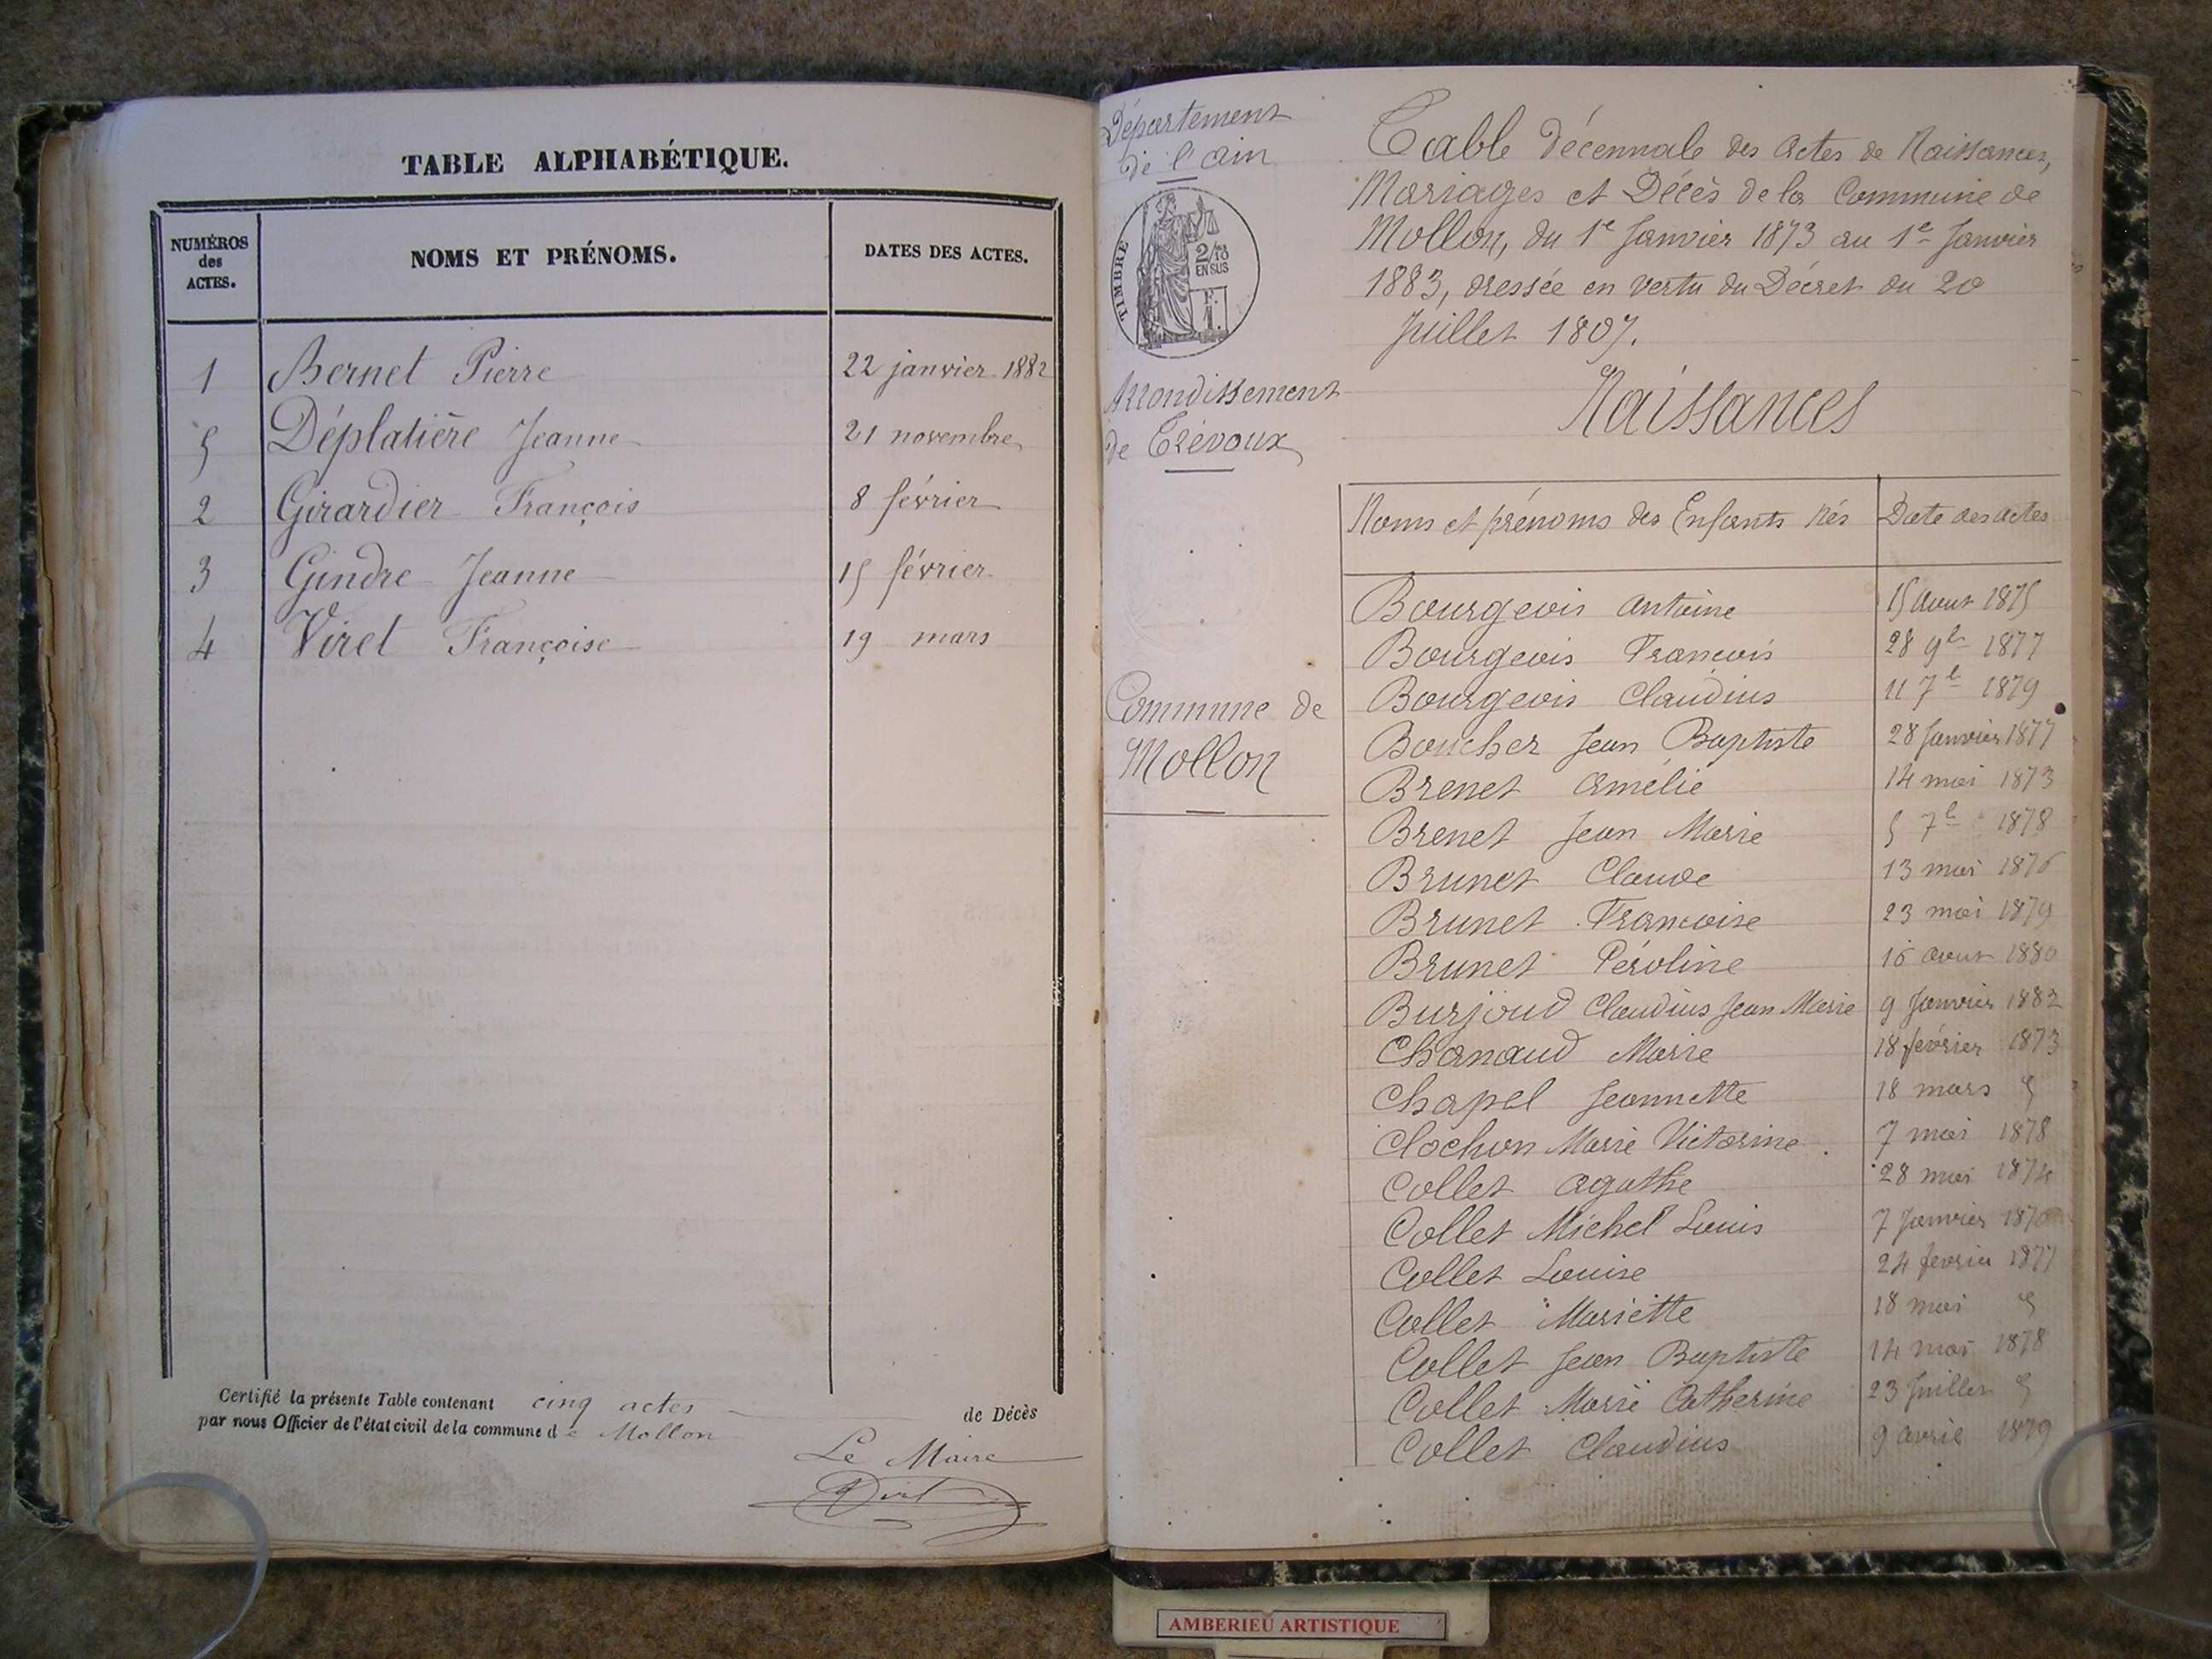 TABLE ALPHABÉTIQUE.
NUMÉROS
des
ACTES.
NOMS ET PRÉNOMS.
DATES DES ACTES.
1 Bernet Pierre 22 janvier 1882
5 Déplatière Jeanne 21 novembre
2 Girardier François 8 février
3 Gindre Jeanne 15 février
4 Viret Françoise 19 mars
Certifié la présente Table contenant cinq actes de Décès
par nous Officier de l'état civil de la commune de Mollon
Le Maire
Département
de l'ain
TIMBRE
2/10
EN SUS
F.
1.
Arrondissement
de Trévoux
Commune de
Mollon
Table décennale des actes de Naissances,
Mariages et Décès de la Commune de
Mollon, du 1e Janvier 1873 au 1e Janvier
1883, dressée en vertu du Décret du 20
Juillet 1807.
Naissances
Noms et prénoms des Enfants nés Date des actes
Bourgeois antoine 15 aout 1875
Bourgeois Francois 28 9b 1877
Bourgeois Claudius 11 7b 1879
Boucher Jean Baptiste 28 Janvier 1877
Brenet amélie 14 mai 1873
Brenet Jean Marie 5 7b 1878
Brunet Claude 13 mai 1876
Brunet Francoise 23 mai 1879
Brunet Péroline 16 aout 1880
Burjoud Claudius Jean Marie 9 Janvier 1882
Chanaud Marie 18 février 1873
Chapel Jeannette 18 mars
Clochon Marie Victorine 7 mai 1878
Collet agathe 28 mai 1874
Collet Michel Louis 7 Janvier
Collet Louise 24 fevrier 1877
Collet Mariette 18 mai
Collet Jean Baptiste 14 mai 1878
Collet Marie Catherine 23 Juillet
Collet Claudius 9 avril 1879
AMBERIEU ARTISTIQUE